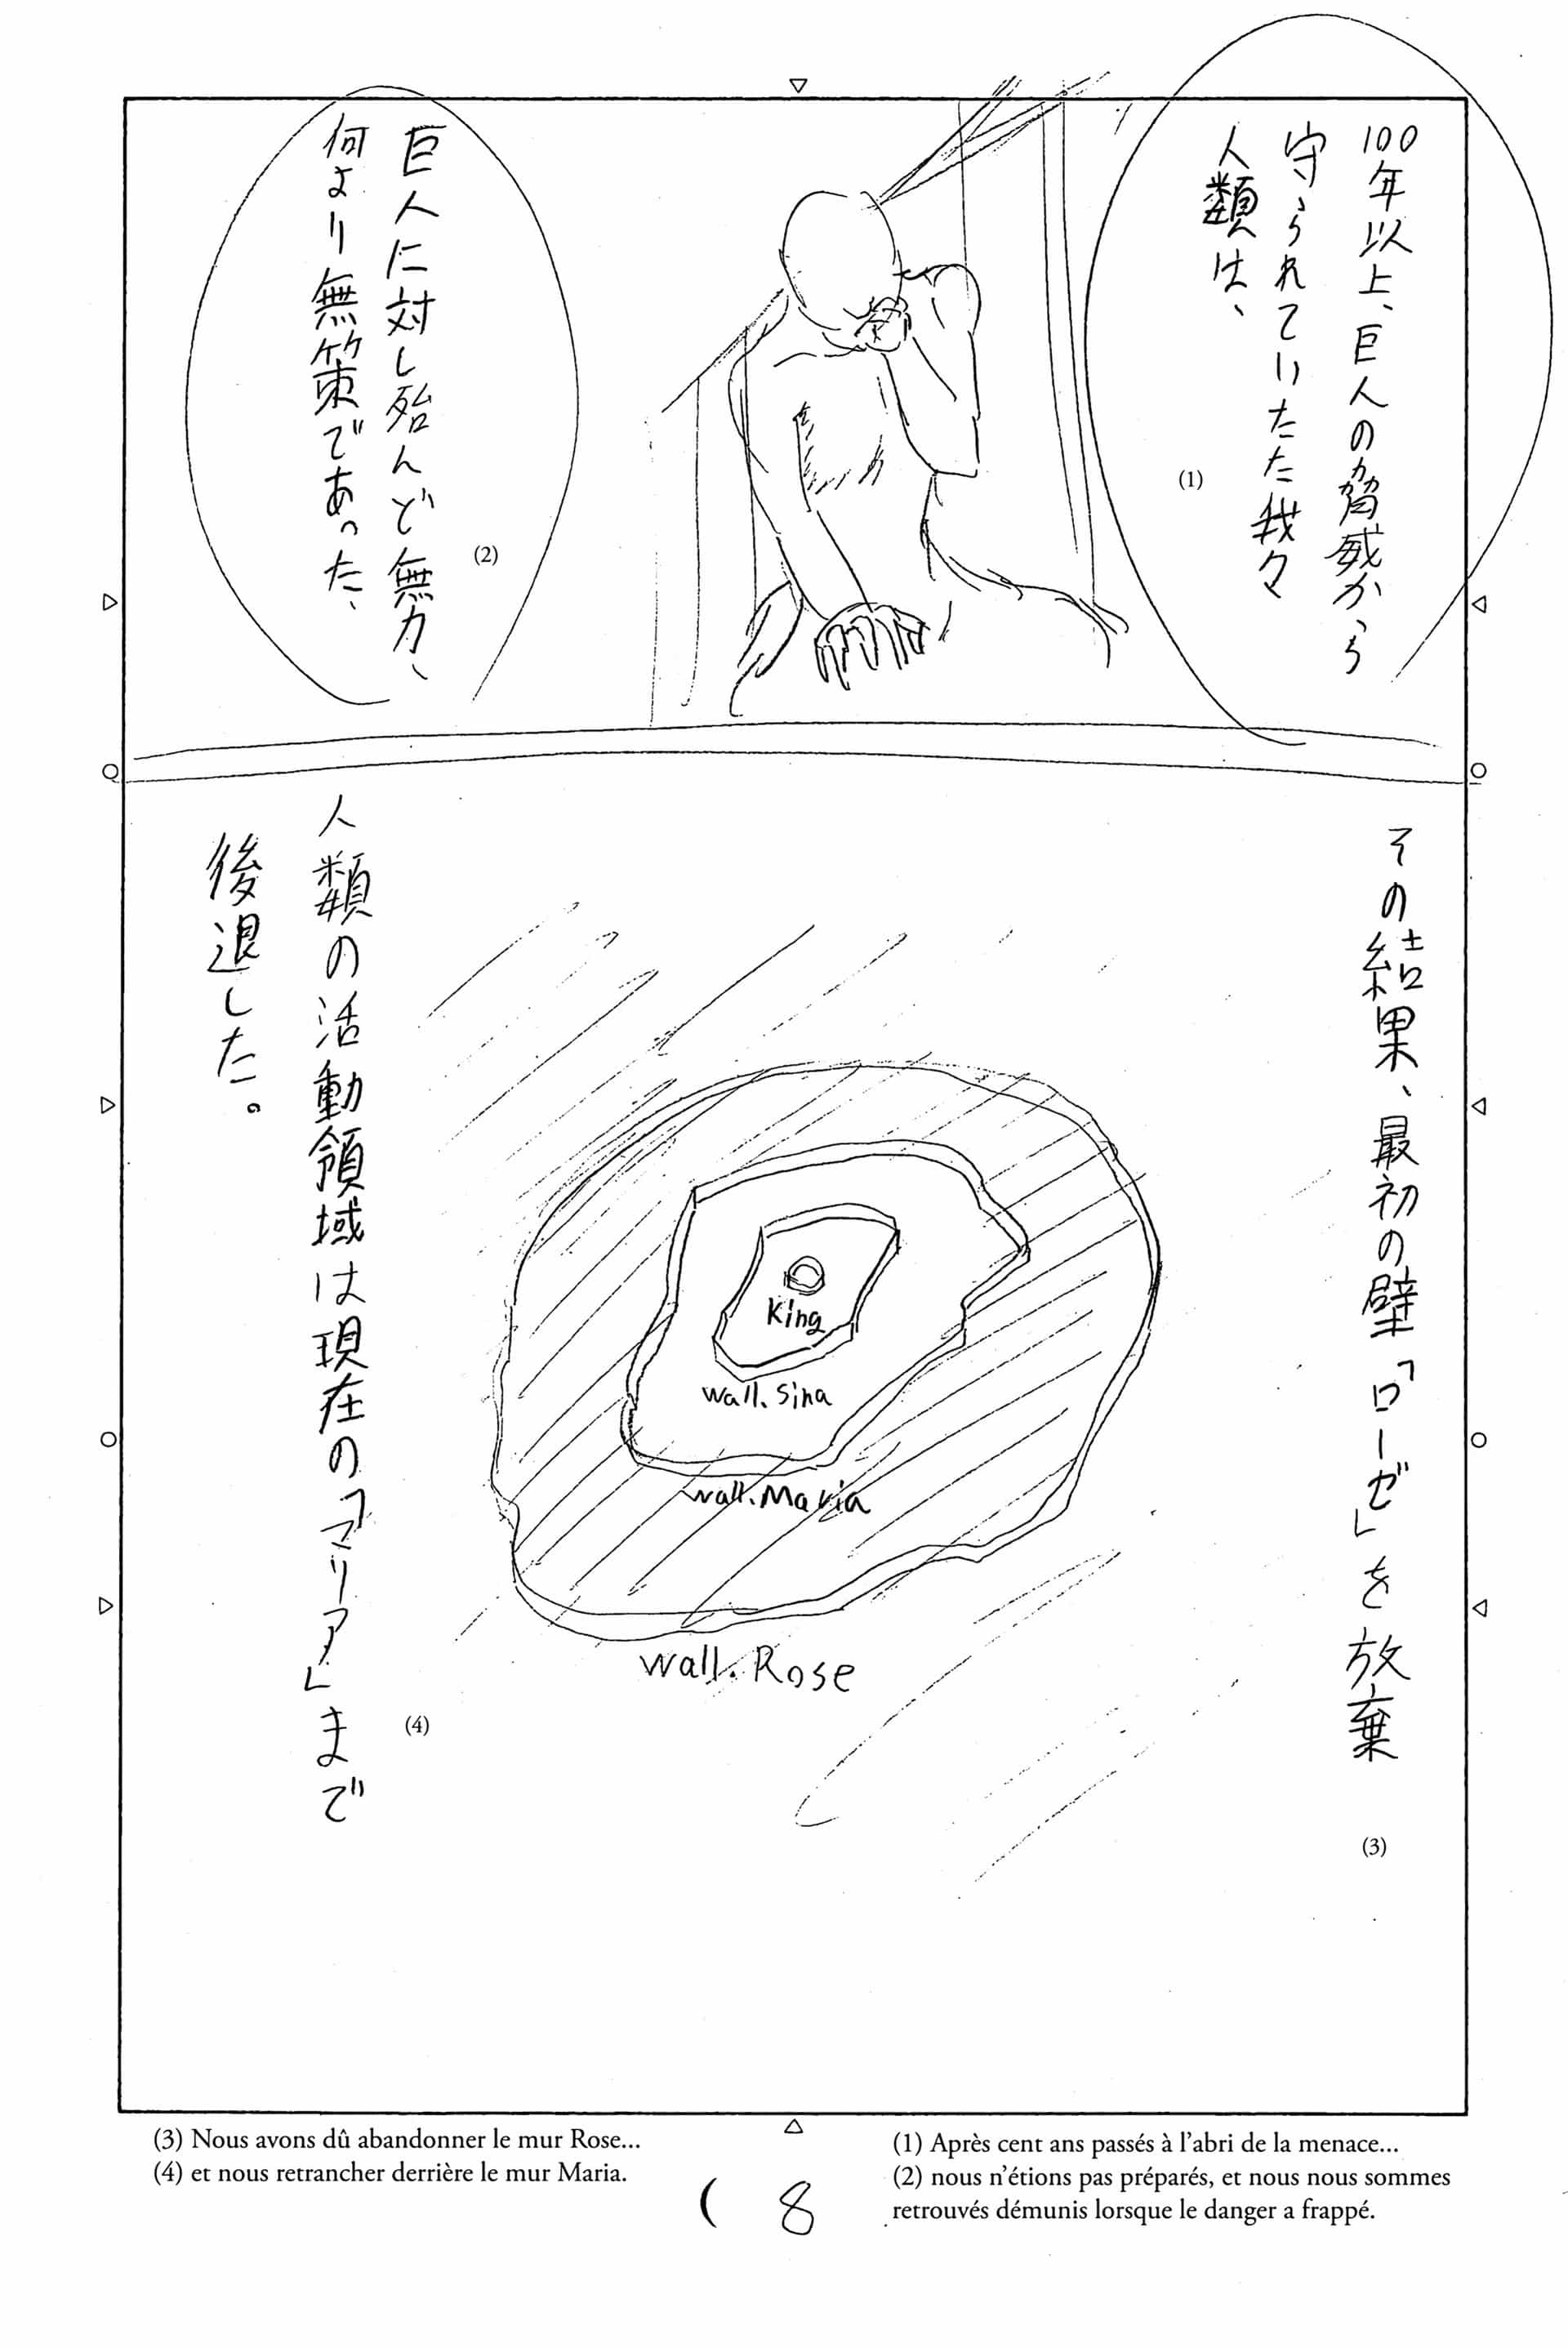 100年以上、巨人の脅威から
守られていたた我々
人類は、
(1)
巨人に対し殆んど無力、
何より無策であった、
(2)
その結果、最初の壁「ローゼ」を放棄
(3)
King
wall.Sina
wall.Maria
wall.Rose
人類の活動領域は現在の「マリア」まで
後退した。
(4)
(1) Après cent ans passés à l’abri de la menace...
(2) nous n’étions pas préparés, et nous nous sommes
retrouvés démunis lorsque le danger a frappé.
(3) Nous avons dû abandonner le mur Rose...
(4) et nous retrancher derrière le mur Maria.
( 8